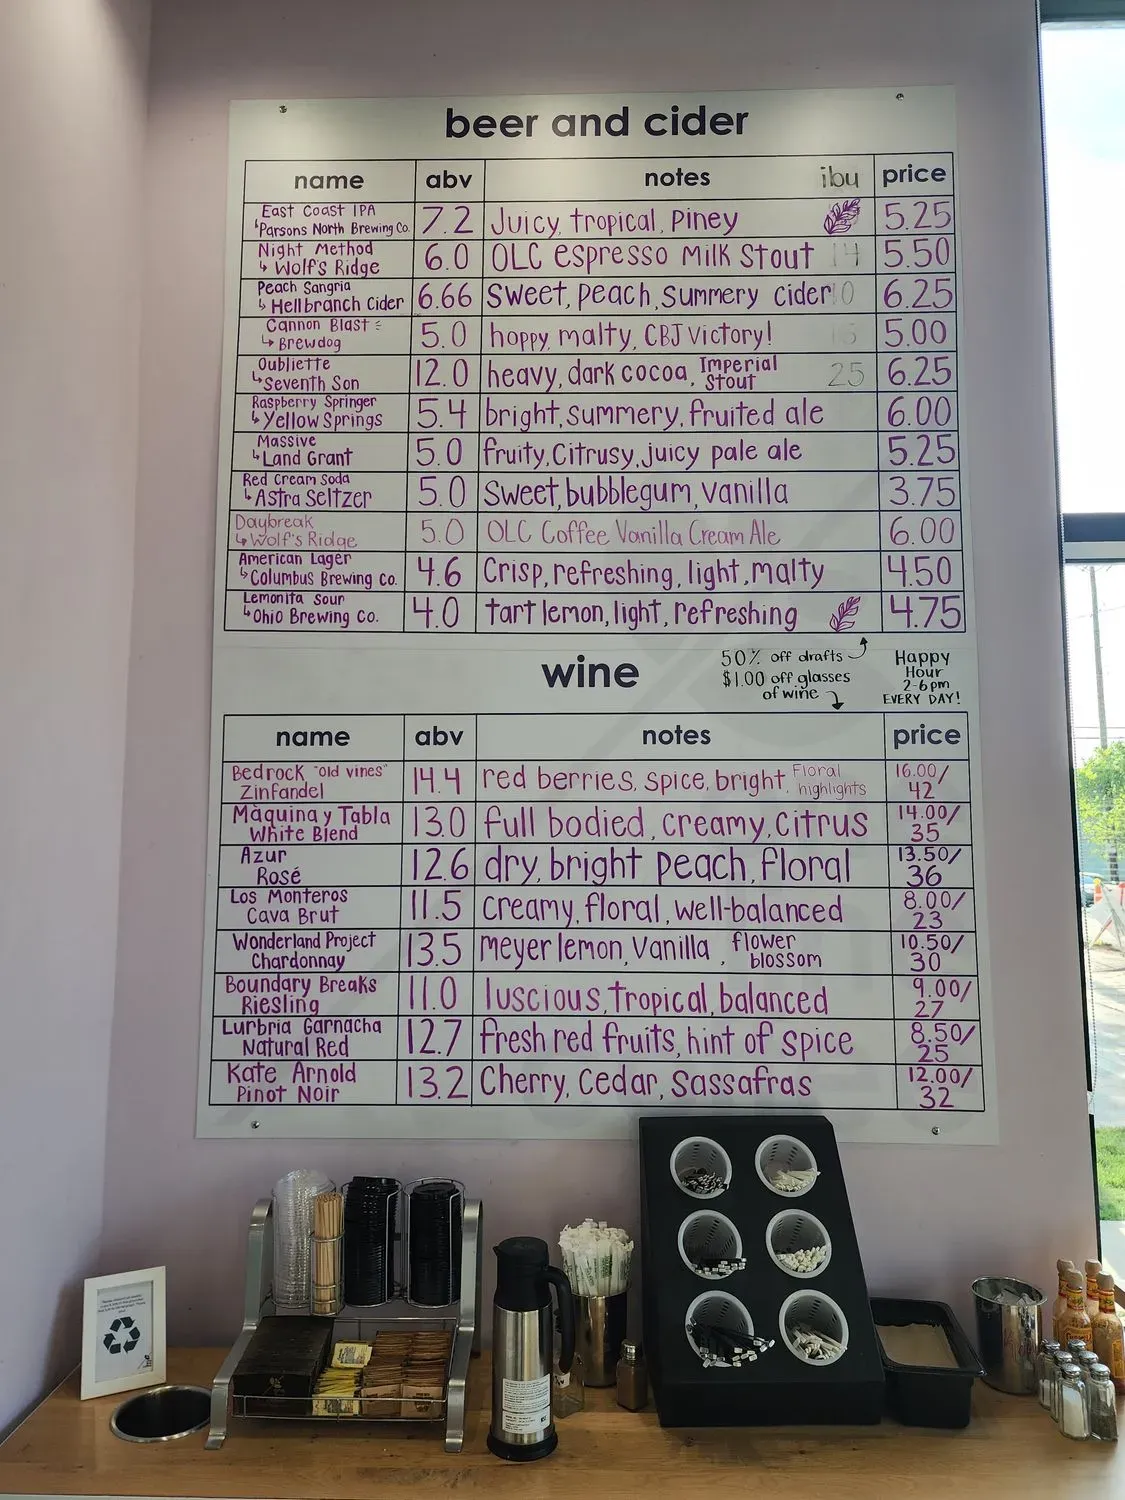 beer and cider
name abv notes ibu price
East Coast IPA
↳Parsons North Brewing Co. 7.2 Juicy, tropical, Piney 5.25
Night Method
↳ Wolf's Ridge 6.0 OLC espresso Milk Stout 14 5.50
Peach Sangria
↳ Hellbranch Cider 6.66 sweet, peach, summery cider 6.25
Cannon Blast
↳ Brewdog 5.0 hoppy, malty, CBJ victory! 5.00
Oubliette
↳Seventh Son 12.0 heavy, dark cocoa, Imperial Stout 25 6.25
Raspberry Springer
↳Yellow Springs 5.4 bright, summery, fruited ale 6.00
Massive
↳Land Grant 5.0 fruity, Citrusy, juicy pale ale 5.25
Red Cream Soda
↳Astra Seltzer 5.0 Sweet, bubblegum, vanilla 3.75
Daybreak
↳Wolf's Ridge 5.0 OLC Coffee Vanilla Cream Ale 6.00
American Lager
↳Columbus Brewing Co. 4.6 Crisp, refreshing, light, malty 4.50
Lemonita Sour
↳Ohio Brewing Co. 4.0 tart lemon, light, refreshing 4.75
wine
50% off drafts
$1.00 off glasses
of wine
Happy
Hour
2-6pm
EVERY DAY!
name abv notes price
Bedrock "old vines"
Zinfandel 14.4 red berries, spice, bright, Floral highlights 16.00/42
Màquina y Tabla
White Blend 13.0 full bodied, creamy, citrus 14.00/35
Azur
Rosé 12.6 dry, bright peach, floral 13.50/36
Los Monteros
Cava Brut 11.5 creamy, floral, well-balanced 8.00/23
Wonderland Project
Chardonnay 13.5 meyer lemon, vanilla, flower blossom 10.50/30
Boundary Breaks
Riesling 11.0 luscious, tropical, balanced 9.00/27
Lurbria Garnacha
Natural Red 12.7 fresh red fruits, hint of spice 8.50/25
Kate Arnold
Pinot Noir 13.2 Cherry, Cedar, Sassafras 12.00/32